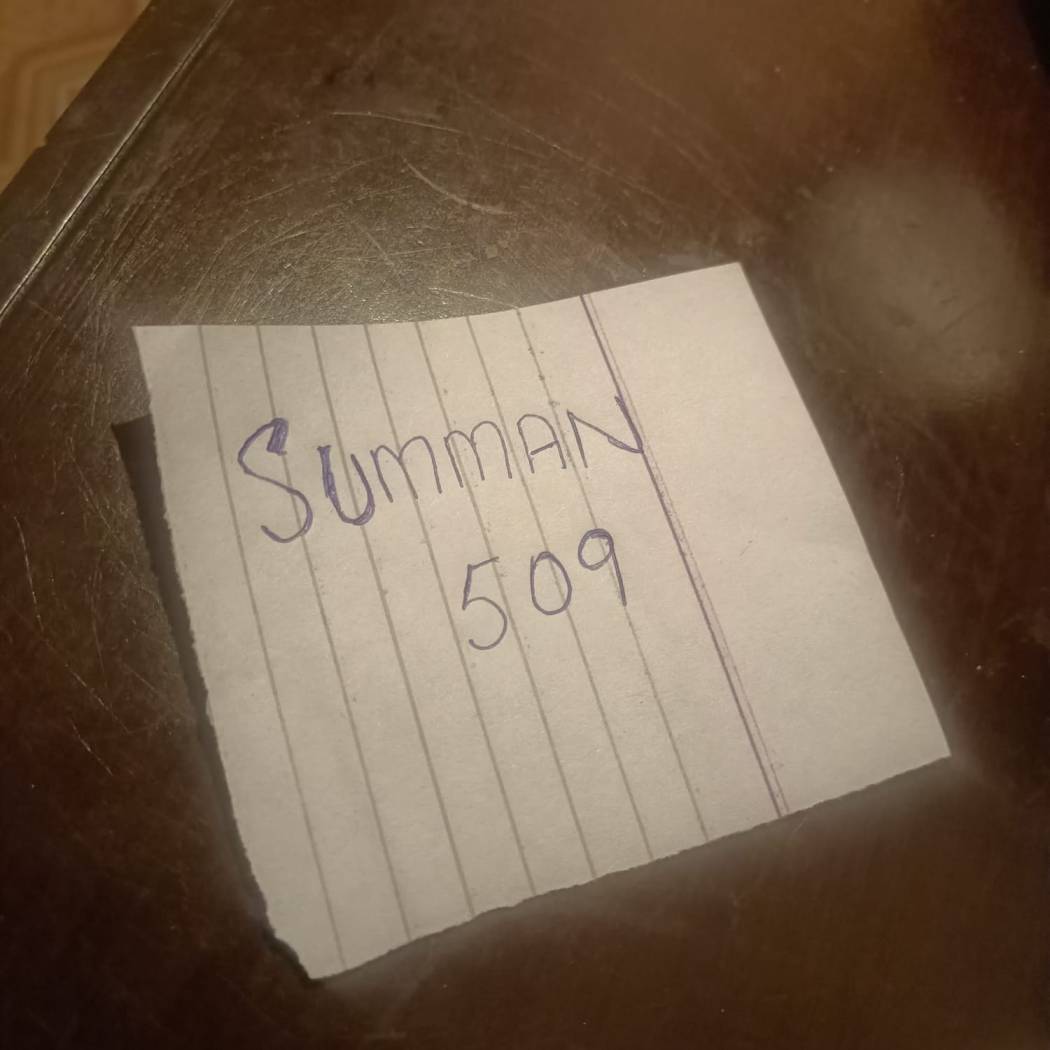 SUMMAN
509